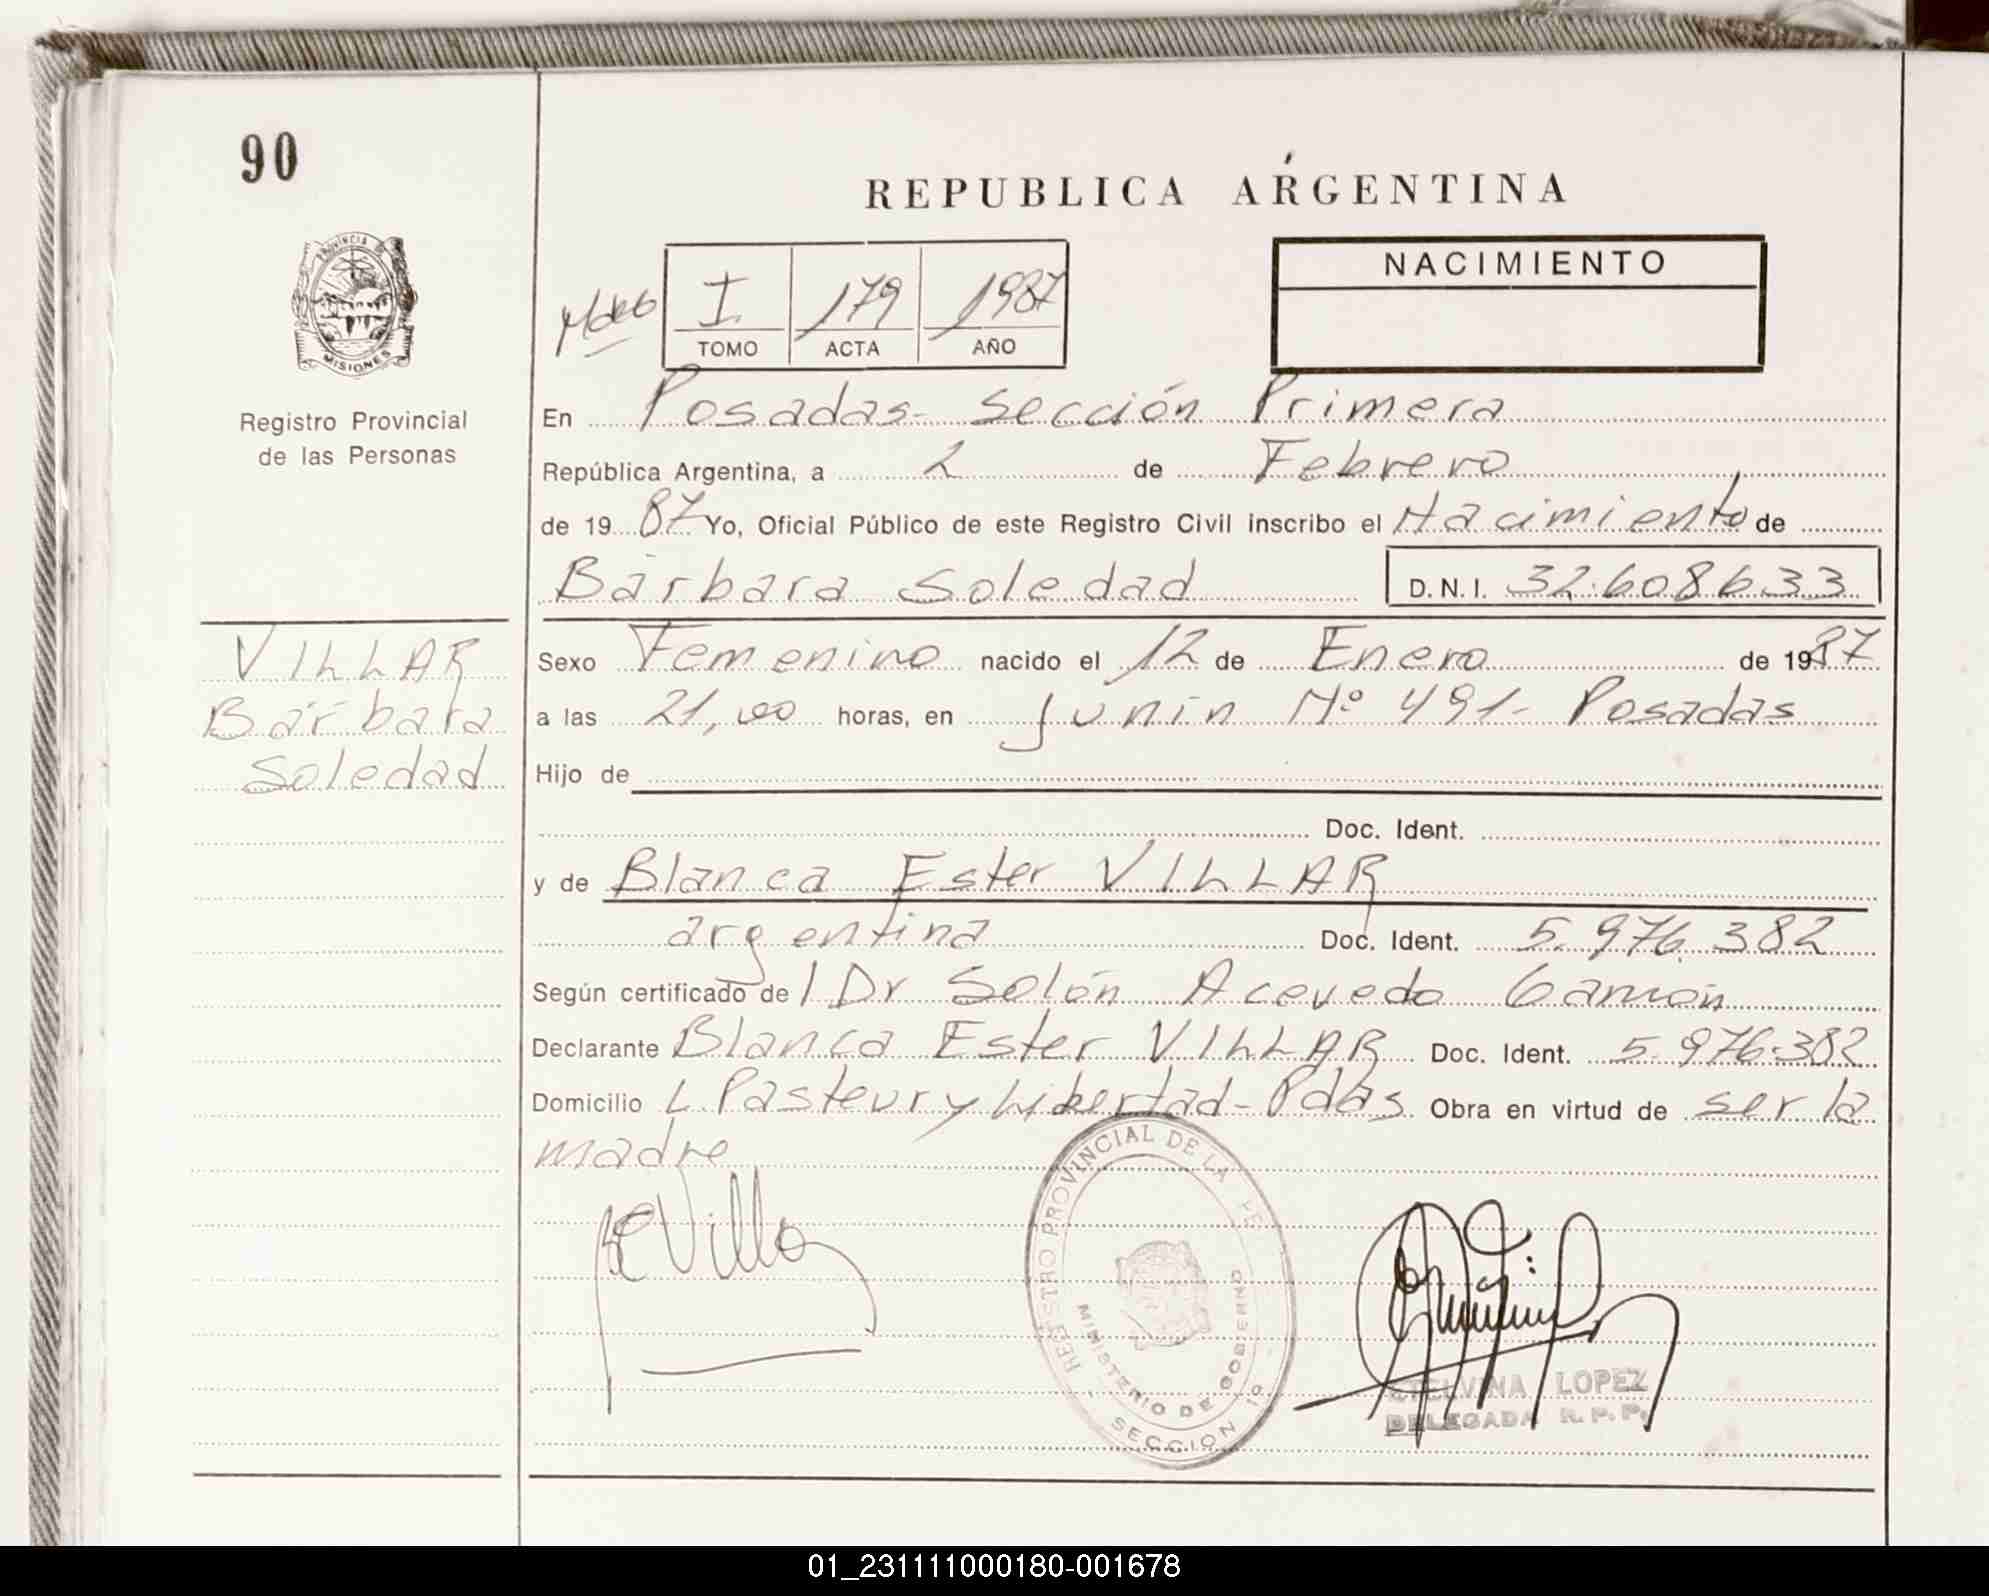 90
REPUBLICA ARGENTINA
PROVINCIA DE
MISIONES
Registro Provincial
de las Personas
I 179 1987
TOMO ACTA AÑO
NACIMIENTO
En Posadas- Sección Primera
República Argentina, a 2 de Febrero
de 1987 Yo, Oficial Público de este Registro Civil inscribo el Nacimiento de
Bárbara Soledad D.N.I. 32.608.633
VILLAR
Bárbara
Soledad
Sexo Femenino nacido el 12 de Enero de 1987
a las 21,00 horas, en Junín Nº 491- Posadas
Hijo de
Doc. Ident.
y de Blanca Ester VILLAR
argentina Doc. Ident. 5.976.382
Según certificado del Dr Solón Acevedo
Declarante Blanca Ester VILLAR Doc. Ident. 5.976.382
Domicilio L. Pasteur y Libertad- Pdas Obra en virtud de ser la
madre
BEVillar
REGISTRO PROVINCIAL DE LA PE
MINISTERIO DE GOBIERNO
SECCION 1º
ETELVINA LOPEZ
DELEGADA R.P.P.
01_231111000180-001678